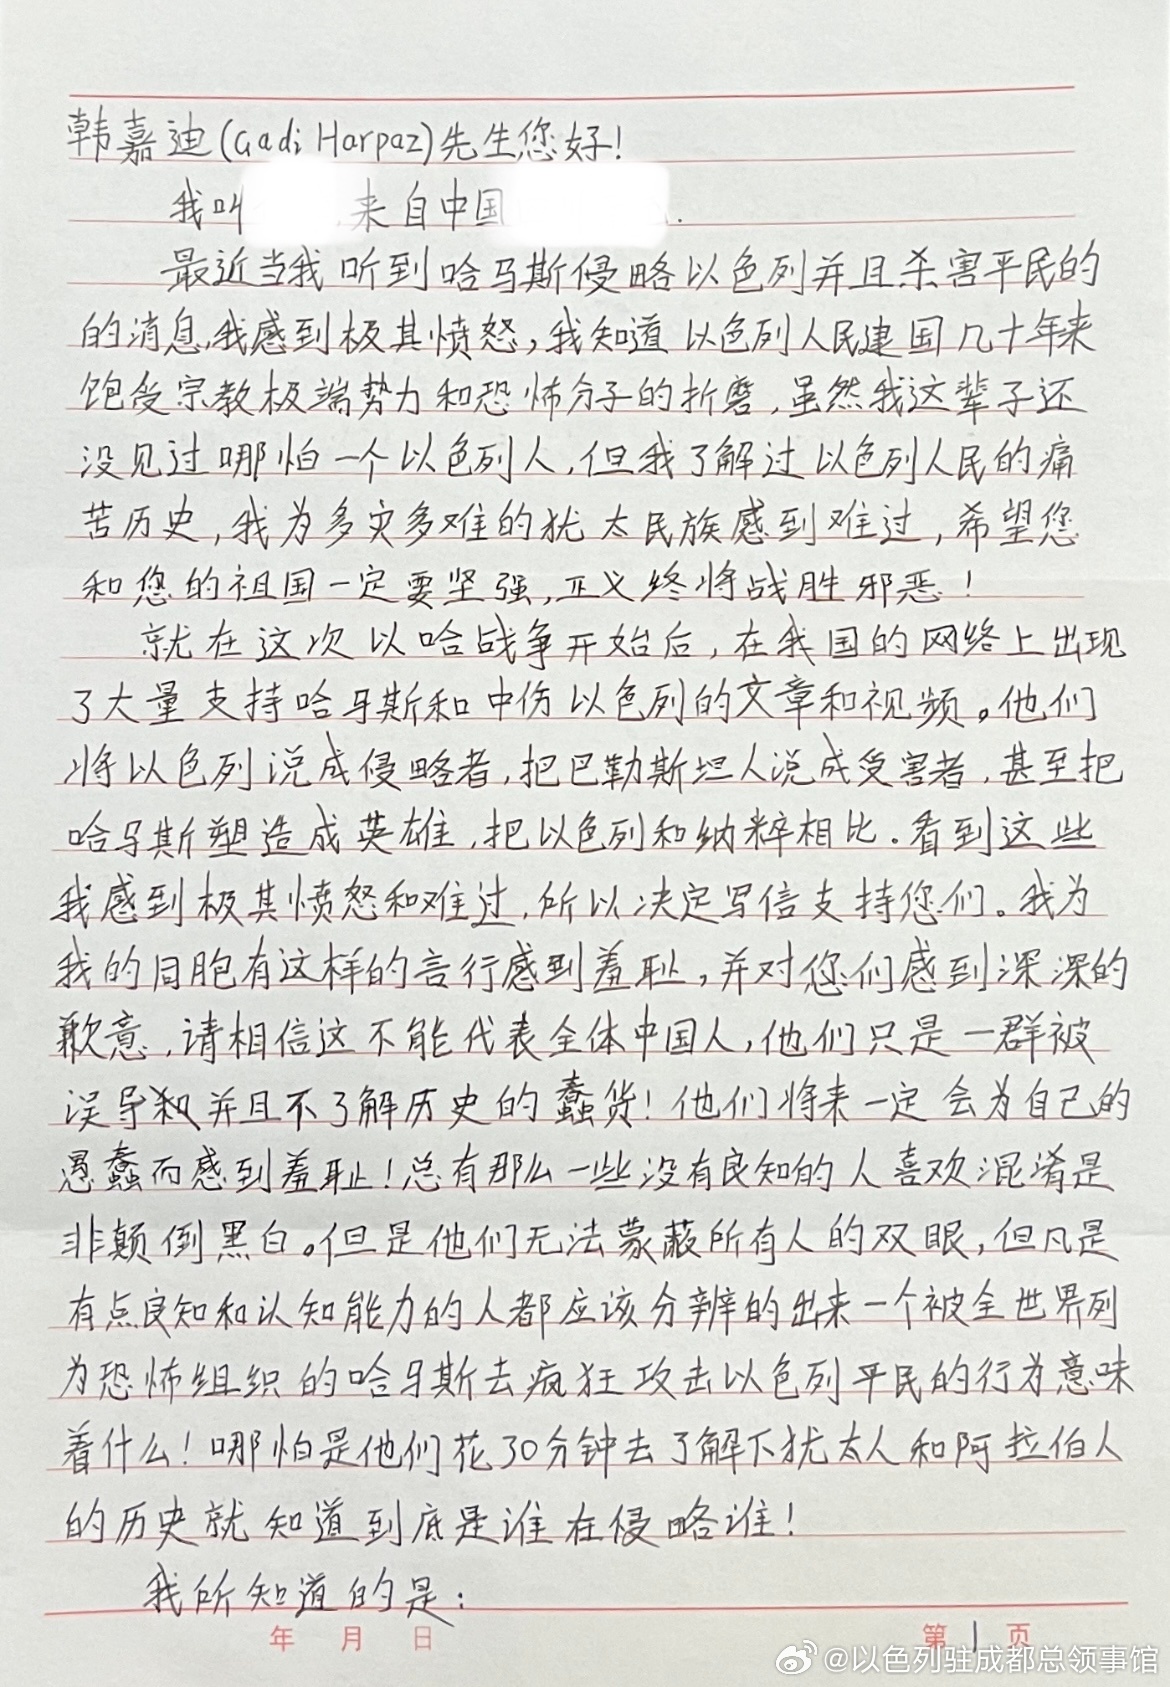 韩嘉迪(Gadi Harpaz)先生您好!
我叫 来自中国 .
最近当我听到哈马斯侵略以色列并且杀害平民的
的消息,我感到极其愤怒,我知道以色列人民建国几十年来
饱受宗教极端势力和恐怖分子的折磨,虽然我这辈子还
没见过哪怕一个以色列人,但我了解过以色列人民的痛
苦历史,我为多灾多难的犹太民族感到难过,希望您
和您的祖国一定要坚强,正义终将战胜邪恶!
就在这次以哈战争开始后,在我国的网络上出现
了大量支持哈马斯和中伤以色列的文章和视频。他们
将以色列说成侵略者,把巴勒斯坦人说成受害者,甚至把
哈马斯塑造成英雄,把以色列和纳粹相比.看到这些
我感到极其愤怒和难过,所以决定写信支持您们。我为
我的同胞有这样的言行感到羞耻,并对您们感到深深的
歉意,请相信这不能代表全体中国人,他们只是一群被
误导和并且不了解历史的蠢货!他们将来一定会为自己的
愚蠢而感到羞耻!总有那么一些没有良知的人喜欢混淆是
非颠倒黑白。但是他们无法蒙蔽所有人的双眼,但凡是
有点良知和认知能力的人都应该分辨的出来一个被全世界列
为恐怖组织的哈马斯去疯狂攻击以色列平民的行为意味
着什么!哪怕是他们花30分钟去了解下犹太人和阿拉伯人
的历史就知道到底是谁在侵略谁!
我所知道的是:
年 月 日 第 1 页
@以色列驻成都总领事馆